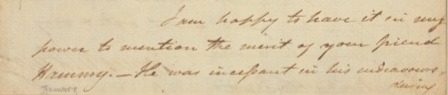 I am happy to have it in my
power to mention the merit of your friend
Hammy. — He was incessant in his endeavours
during